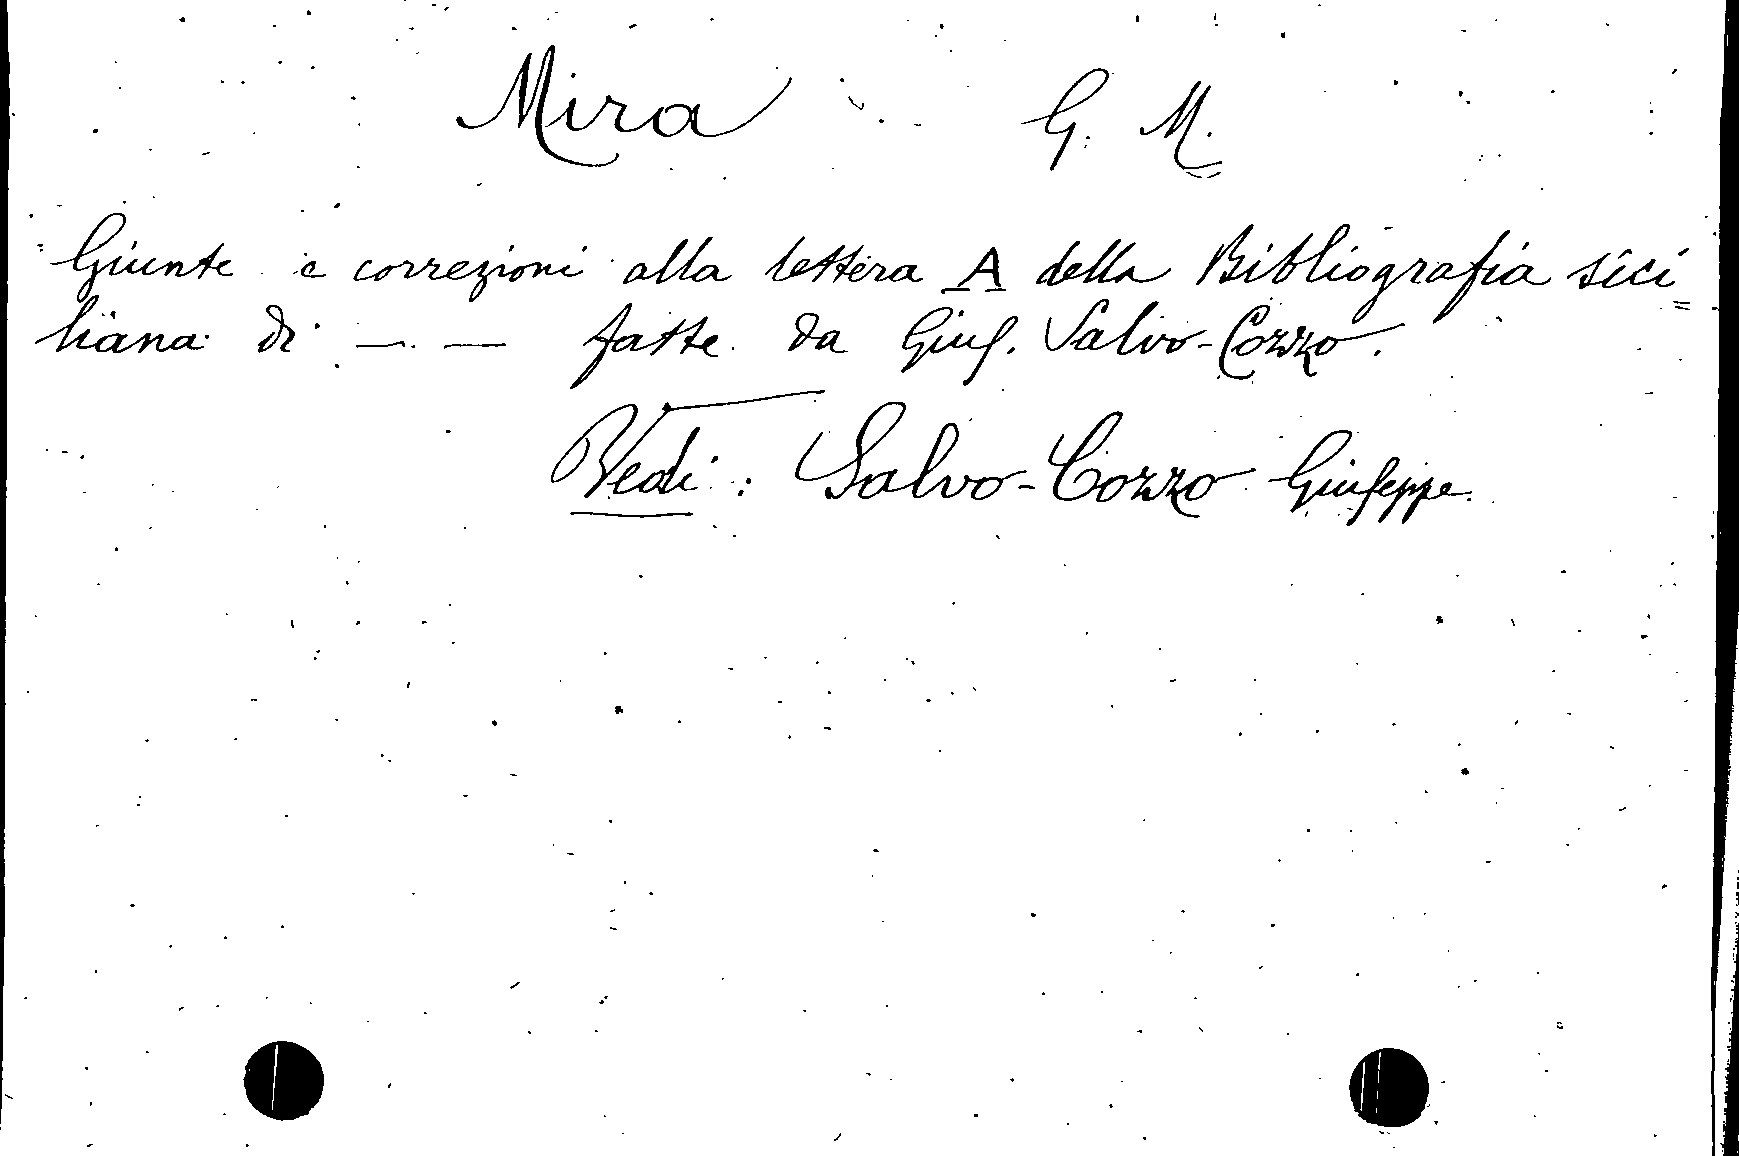 Mira G. M.
Giunte e correzioni alla lettera A della Bibliografia sici=
liana di — — fatte da Gius. Salvo-Cozzo.
Vedi: Salvo-Cozzo Giuseppe.